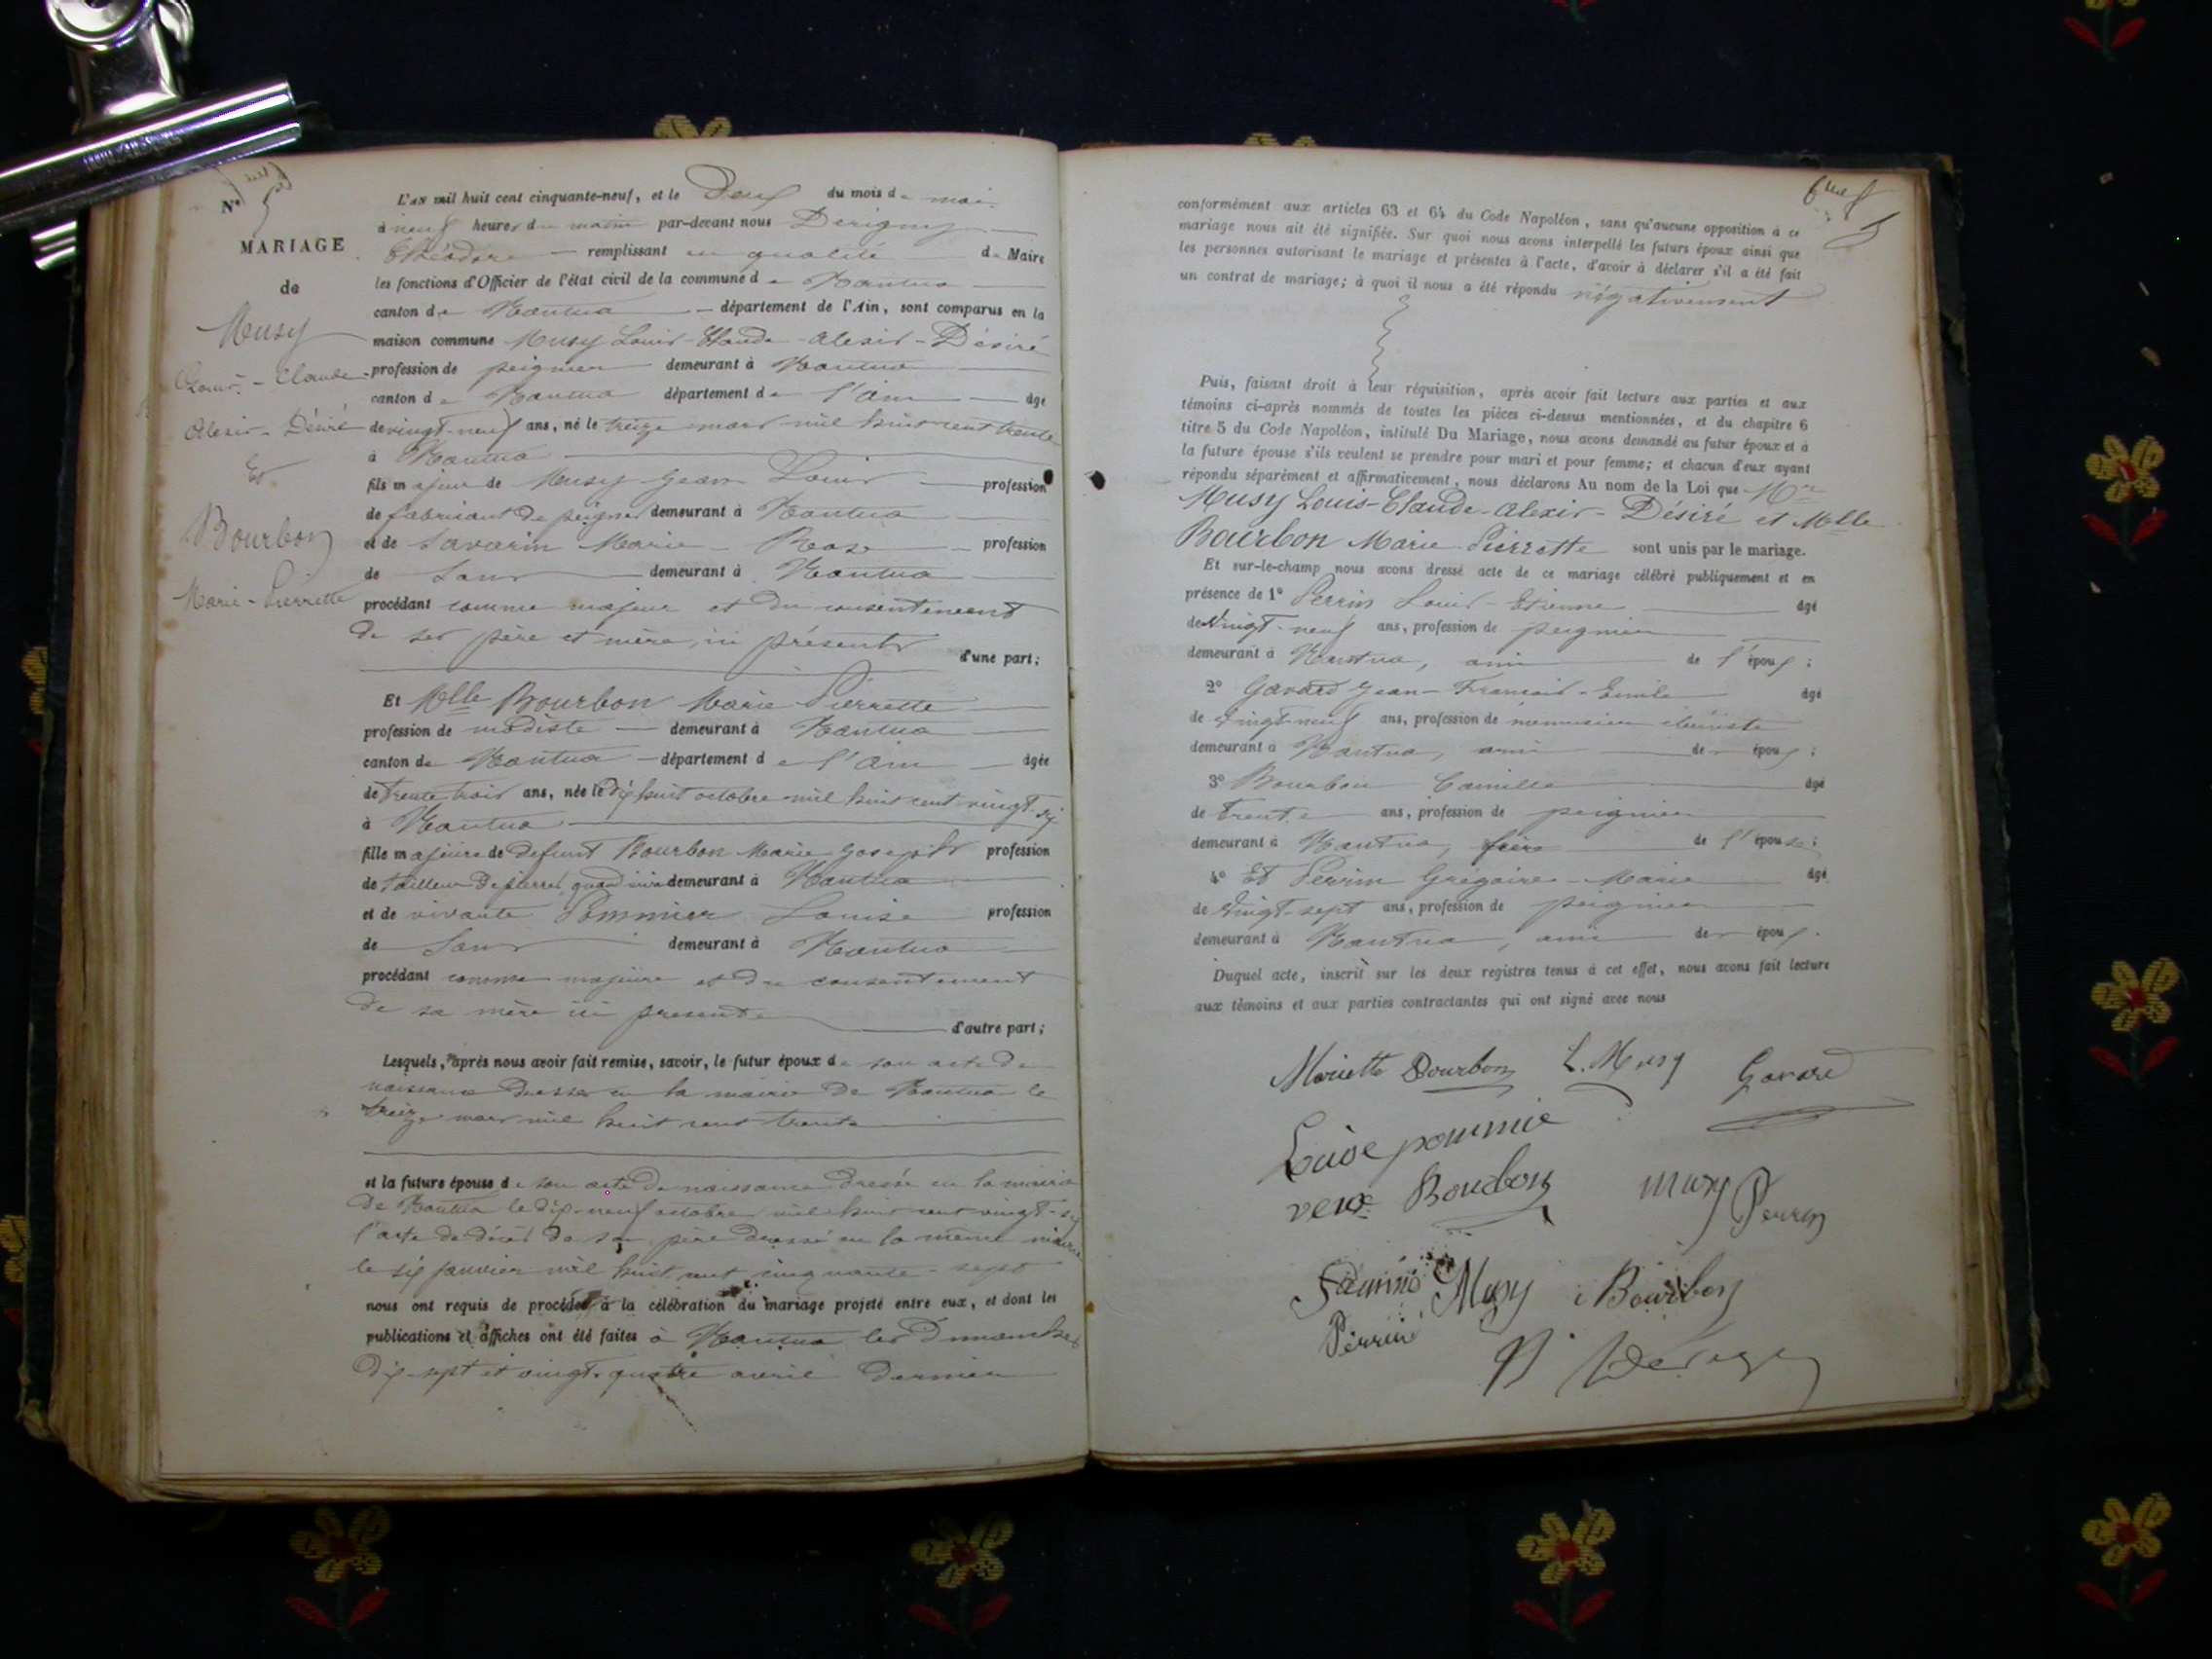 N° 5
MARIAGE
de
Musy
Louis - Claude
Alexis - Désiré
Et
Bourbon
Marie - Pierrette
L'AN mil huit cent cinquante-neuf, et le Deux du mois de mai
à neuf heures du matin par-devant nous Derigny
Théodore remplissant en qualité de Maire
les fonctions d'Officier de l'état civil de la commune de Nantua
canton de Nantua département de l'Ain, sont comparus en la
maison commune Musy Louis-Claude-Alexis-Désiré
profession de peignier demeurant à Nantua
canton de Nantua département de l'Ain âgé
de vingt-neuf ans, né le treize mars mil huit cent trente
à Nantua
fils majeur de Musy Jean Louis profession
de fabricant de peignes demeurant à Nantua
et de Savarin Marie - Rose profession
de Sans demeurant à Nantua
procédant comme majeur et du consentement
de ses père et mère, ici présents
d'une part;
Et Melle Bourbon Marie Pierrette
profession de modiste demeurant à Nantua
canton de Nantua département de l'Ain âgée
de trente trois ans, née le dix huit octobre mil huit cent vingt-six
à Nantua
fille majeure de defunt Bourbon Marie Joseph profession
de tailleur de pierres, quand vivait demeurant à Nantua
et de vivante Pommier Louise profession
de Sans demeurant à Nantua
procédant comme majeure et du consentement
de sa mère ici presente
d'autre part;
Lesquels, après nous avoir fait remise, savoir, le futur époux de son acte de
naissance dressé en la mairie de Nantua le
treize mars mil huit cent trente
et la future épouse de son acte de naissance dressé en la mairie
de Nantua le dix-neuf octobre mil huit cent vingt-six
l'acte de décès de son père dressé en la même mairie
le six janvier mil huit cent cinquante-sept
nous ont requis de procéder à la célébration du mariage projeté entre eux, et dont les
publications et affiches ont été faites à Nantua les Dimanches
dix-sept et vingt-quatre avril dernier
5
conformément aux articles 63 et 64 du Code Napoléon, sans qu'aucune opposition à ce
mariage nous ait été signifiée. Sur quoi nous avons interpellé les futurs époux ainsi que
les personnes autorisant le mariage et présentes à l'acte, d'avoir à déclarer s'il a été fait
un contrat de mariage; à quoi il nous a été répondu négativement
Puis, faisant droit à leur réquisition, après avoir fait lecture aux parties et aux
témoins ci-après nommés de toutes les pièces ci-dessus mentionnées, et du chapitre 6
titre 5 du Code Napoléon, intitulé Du Mariage, nous avons demandé au futur époux et à
la future épouse s'ils veulent se prendre pour mari et pour femme; et chacun d'eux ayant
répondu séparément et affirmativement, nous déclarons Au nom de la Loi que Mr
Musy Louis-Claude-Alexis-Désiré et Melle
Bourbon Marie Pierrette sont unis par le mariage.
Et sur-le-champ nous avons dressé acte de ce mariage célébré publiquement et en
présence de 1° Perrin Louis-Etienne âgé
de Vingt-neuf ans, profession de peignier
demeurant à Nantua, ami de l'époux;
2° Gavard Jean-François-Emile âgé
de Vingt neuf ans, profession de menuisier ébéniste
demeurant à Nantua, ami de époux;
3° Bourbon Camille âgé
de trente ans, profession de peignier
demeurant à Nantua, frère de l'épouse;
4° Et Perrin Grégoire-Marie âgé
de Vingt-sept ans, profession de peignier
demeurant à Nantua, ami de époux.
Duquel acte, inscrit sur les deux registres tenus à cet effet, nous avons fait lecture
aux témoins et aux parties contractantes qui ont signé avec nous
Mariette Bourbon L. Musy Gavard
Luise pourmie
veve Bourbon musy Perrin
Musy Bourbon
Perrin